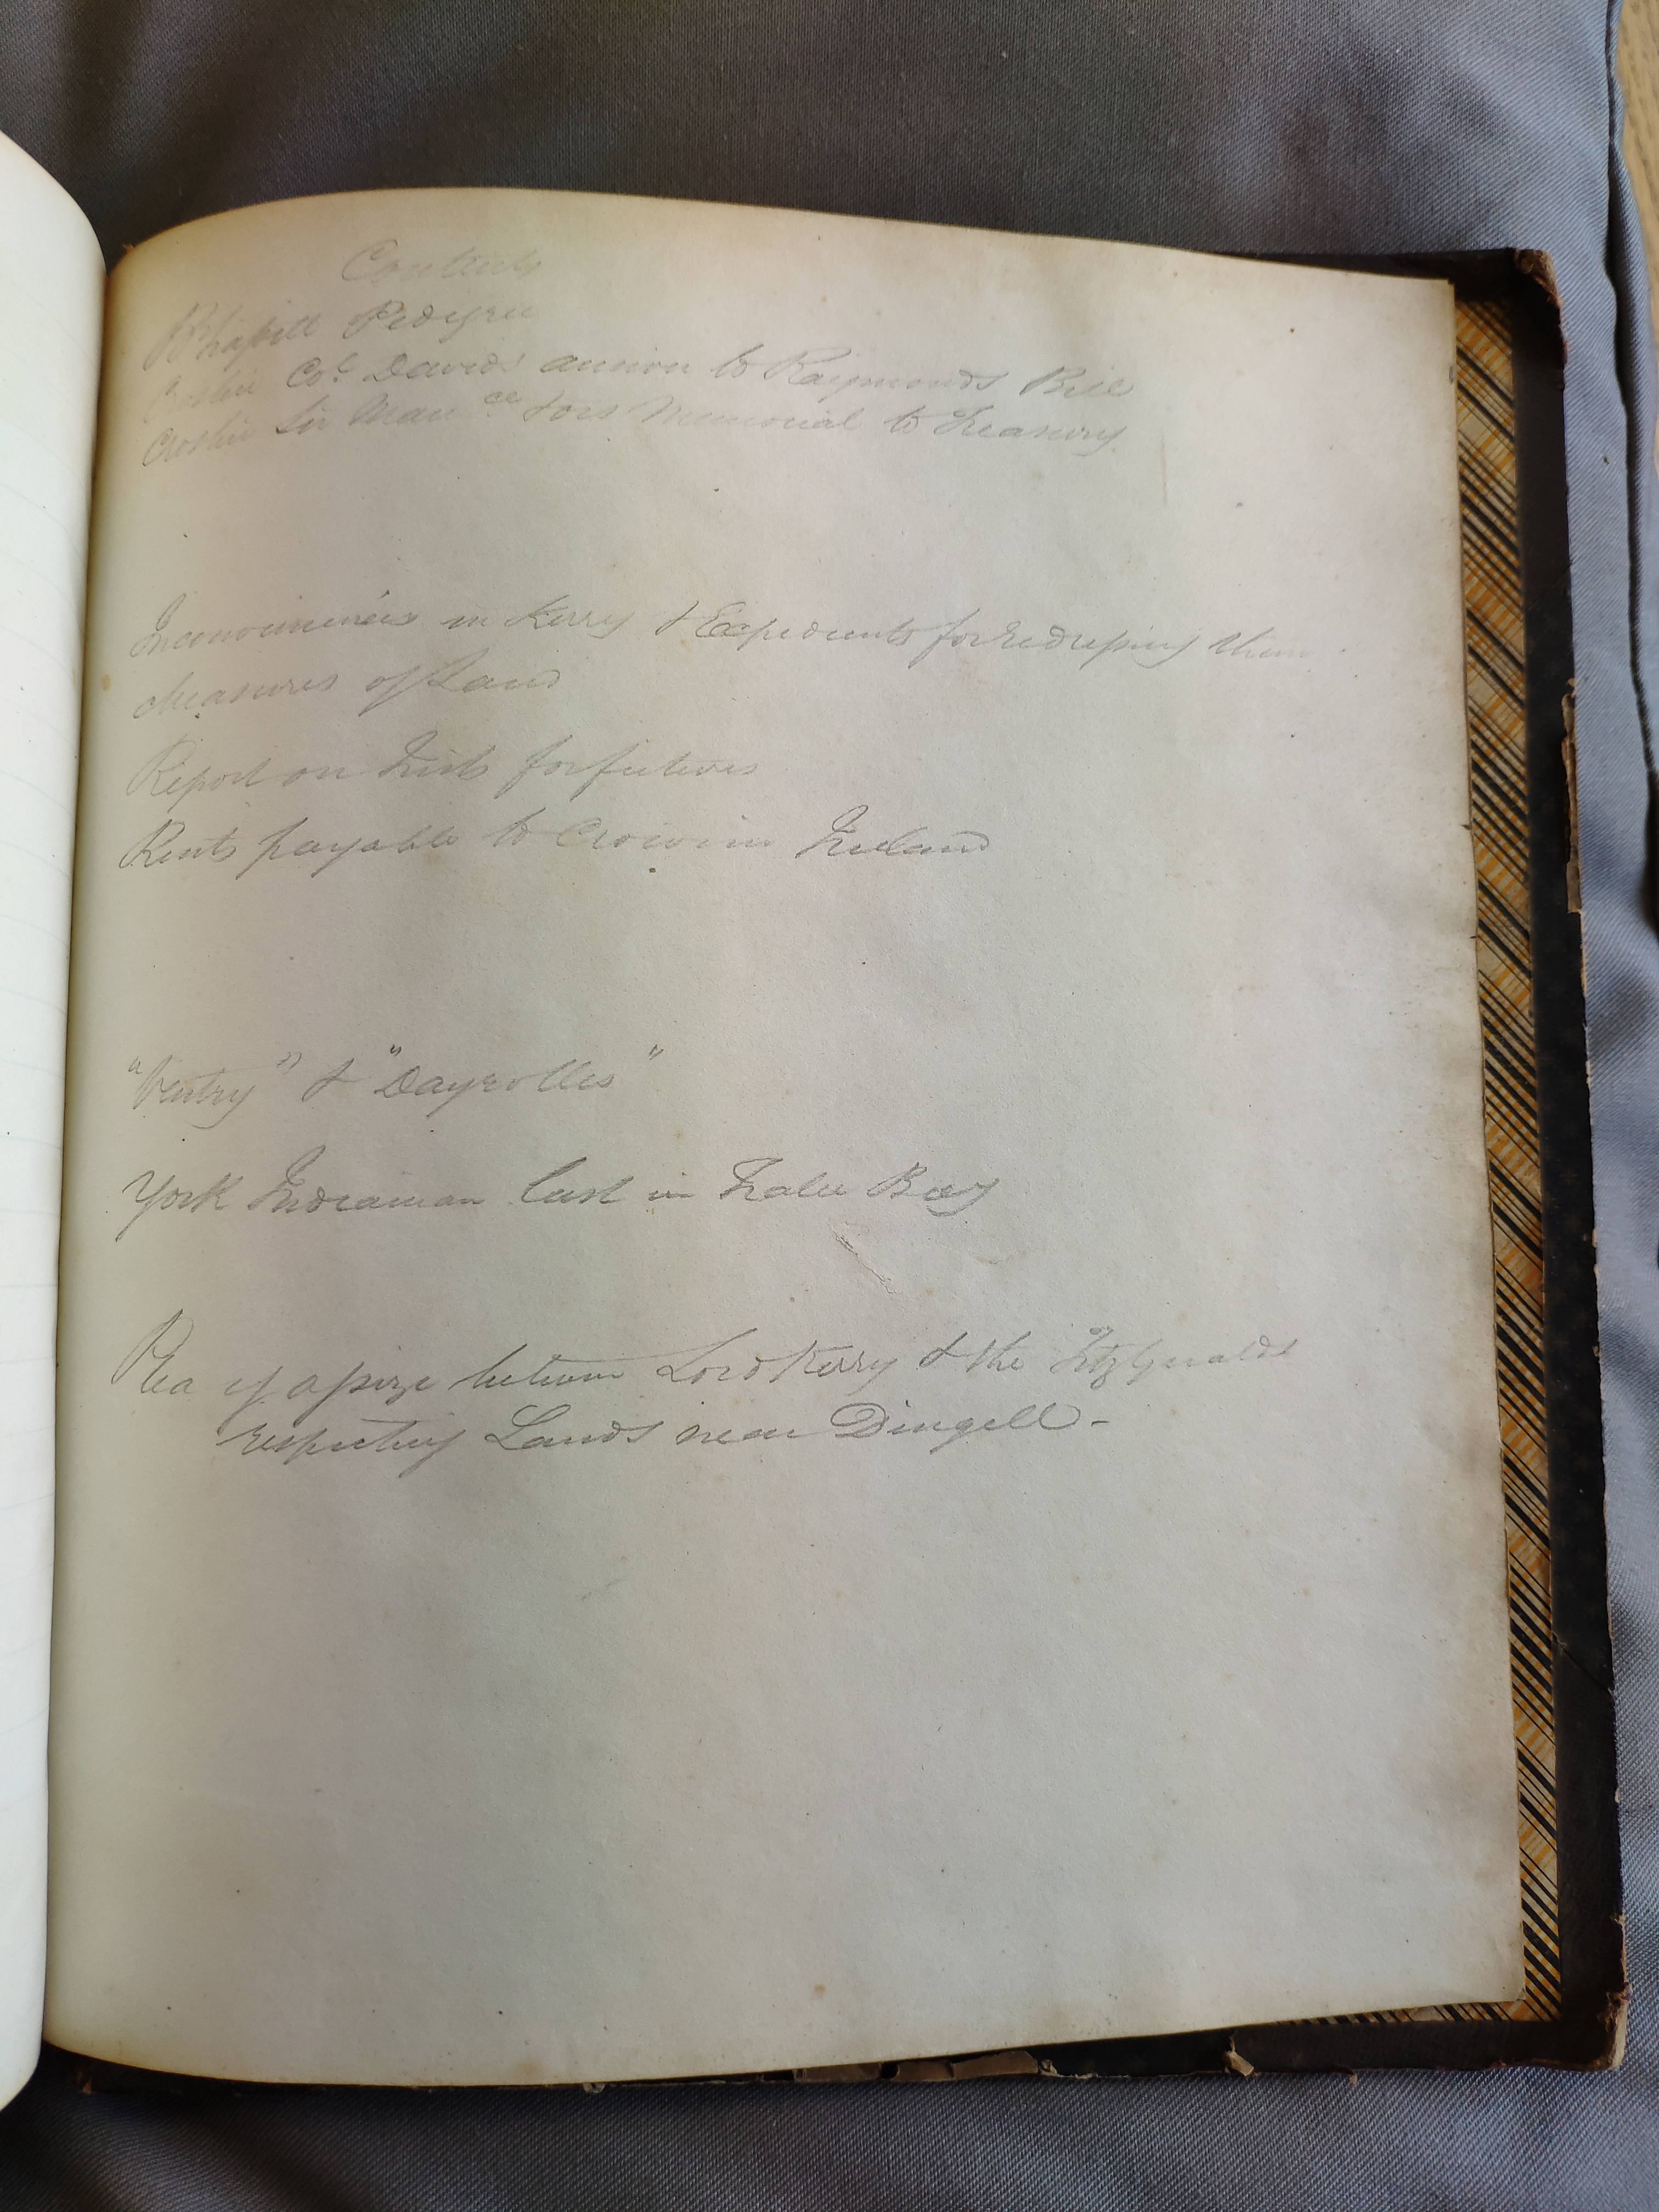 Contents
Blaſsett Pedigree
Crosbie Col Davids answer to Raymonds Bill
Crosbie Sir Mauce &ors Memorial to Treasury
Inconveniencies in Kerry & Expedients for redreſsing them
Measures of Land
Report on Irish forfeitures
Rents payable to Crown in Ireland
"Ventry" & "Dayrolles"
York Indiaman lost in Tralee Bay
Plea of aſsize between Lord Kerry & the Fitzgeralds
respecting Lands near Dingell -